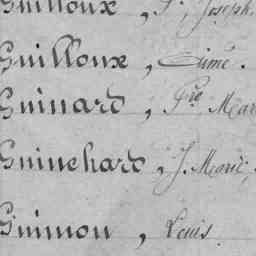 Guilloux, P. Joseph.
Guilloux, Aimé.
Guinard, Pre Mar
Guinchard, J. Marie,
Guimon, Louis.